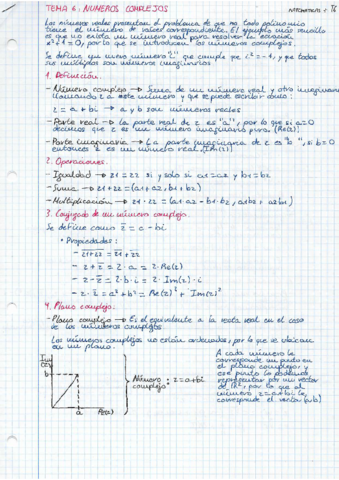 TEMA 6: NÚMEROS COMPLEJOS
Los números reales presentan el problema de que no todo polinomio
tiene el número de raíces correspondiente. El ejemplo más sencillo
es que no existe un número real para resolver la ecuación
x²+1=0, por lo que se introducen los números complejos.
Se define un número "i" que cumple que i²=-1, y que todos
sus múltiplos son números imaginarios
1. Definición.
-Número complejo → Suma de un número real y otro imaginario
llamando z a este número y que se puede escribir como:
z = a + bi → a y b son números reales
-Parte real → La parte real de z es "a", por lo que si a=0
decimos que z es un número imaginario puro. (Re(z))
-Parte imaginaria → La parte imaginaria de z es "b", si b=0
entonces z es un número real. Im(z)
2. Operaciones.
-Igualdad → z1 = z2 si y solo si a1=a2 y b1=b2
-Suma → z1+z2 = (a1+a2, b1+b2)
-Multiplicación → z1·z2 = (a1·a2-b1·b2, a1b2+a2b1)
3. Conjugado de un número complejo.
Se define como z̄ = a - bi
• Propiedades:
- z1+z2 = z1+z2
- z+z̄ = 2·a = 2·Re(z)
- z-z̄ = 2·b·i = 2·Im(z)·i
- z·z̄ = a²+b² = Re(z)²+Im(z)²
4. Plano complejo.
-Plano complejo → Es el equivalente a la recta real en el caso
de los números complejos.
Los números complejos no están ordenados, por lo que se ubican
en un plano.
Im
(z)
b
a
Re(z)
Número
complejo: z=a+bi
A cada número le
corresponde un punto en
el plano complejo, y
ese punto lo podemos
representar por un vector
de R², por lo que al
número z=a+bi le
corresponde el vector (a,b)